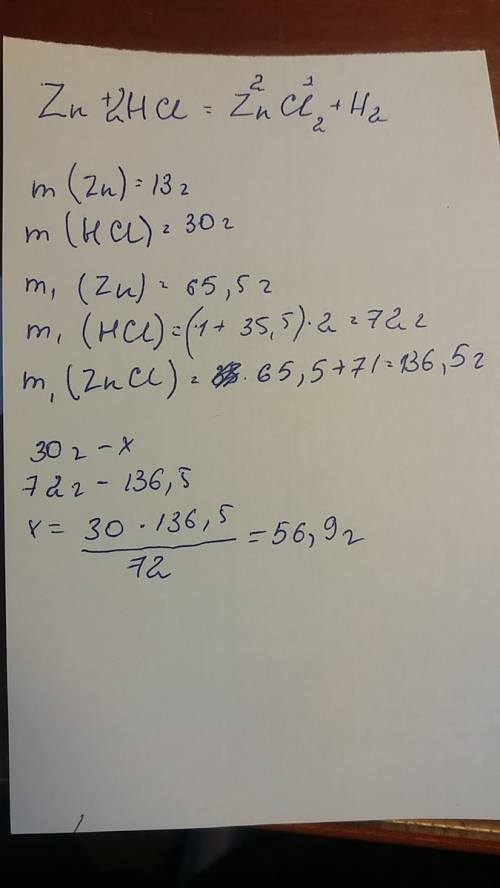 Zn + 2HCl = Zn²Cl¹₂ + H₂
m (Zn) = 13 г
m (HCl) = 30 г
m₁ (Zn) = 65,5 г
m₁ (HCl) = (1 + 35,5) · 2 = 72 г
m₁ (ZnCl) = 65,5 + 71 = 136,5 г
30 г - x
72 г - 136,5
x = 30 · 136,5 / 72 = 56,9 г